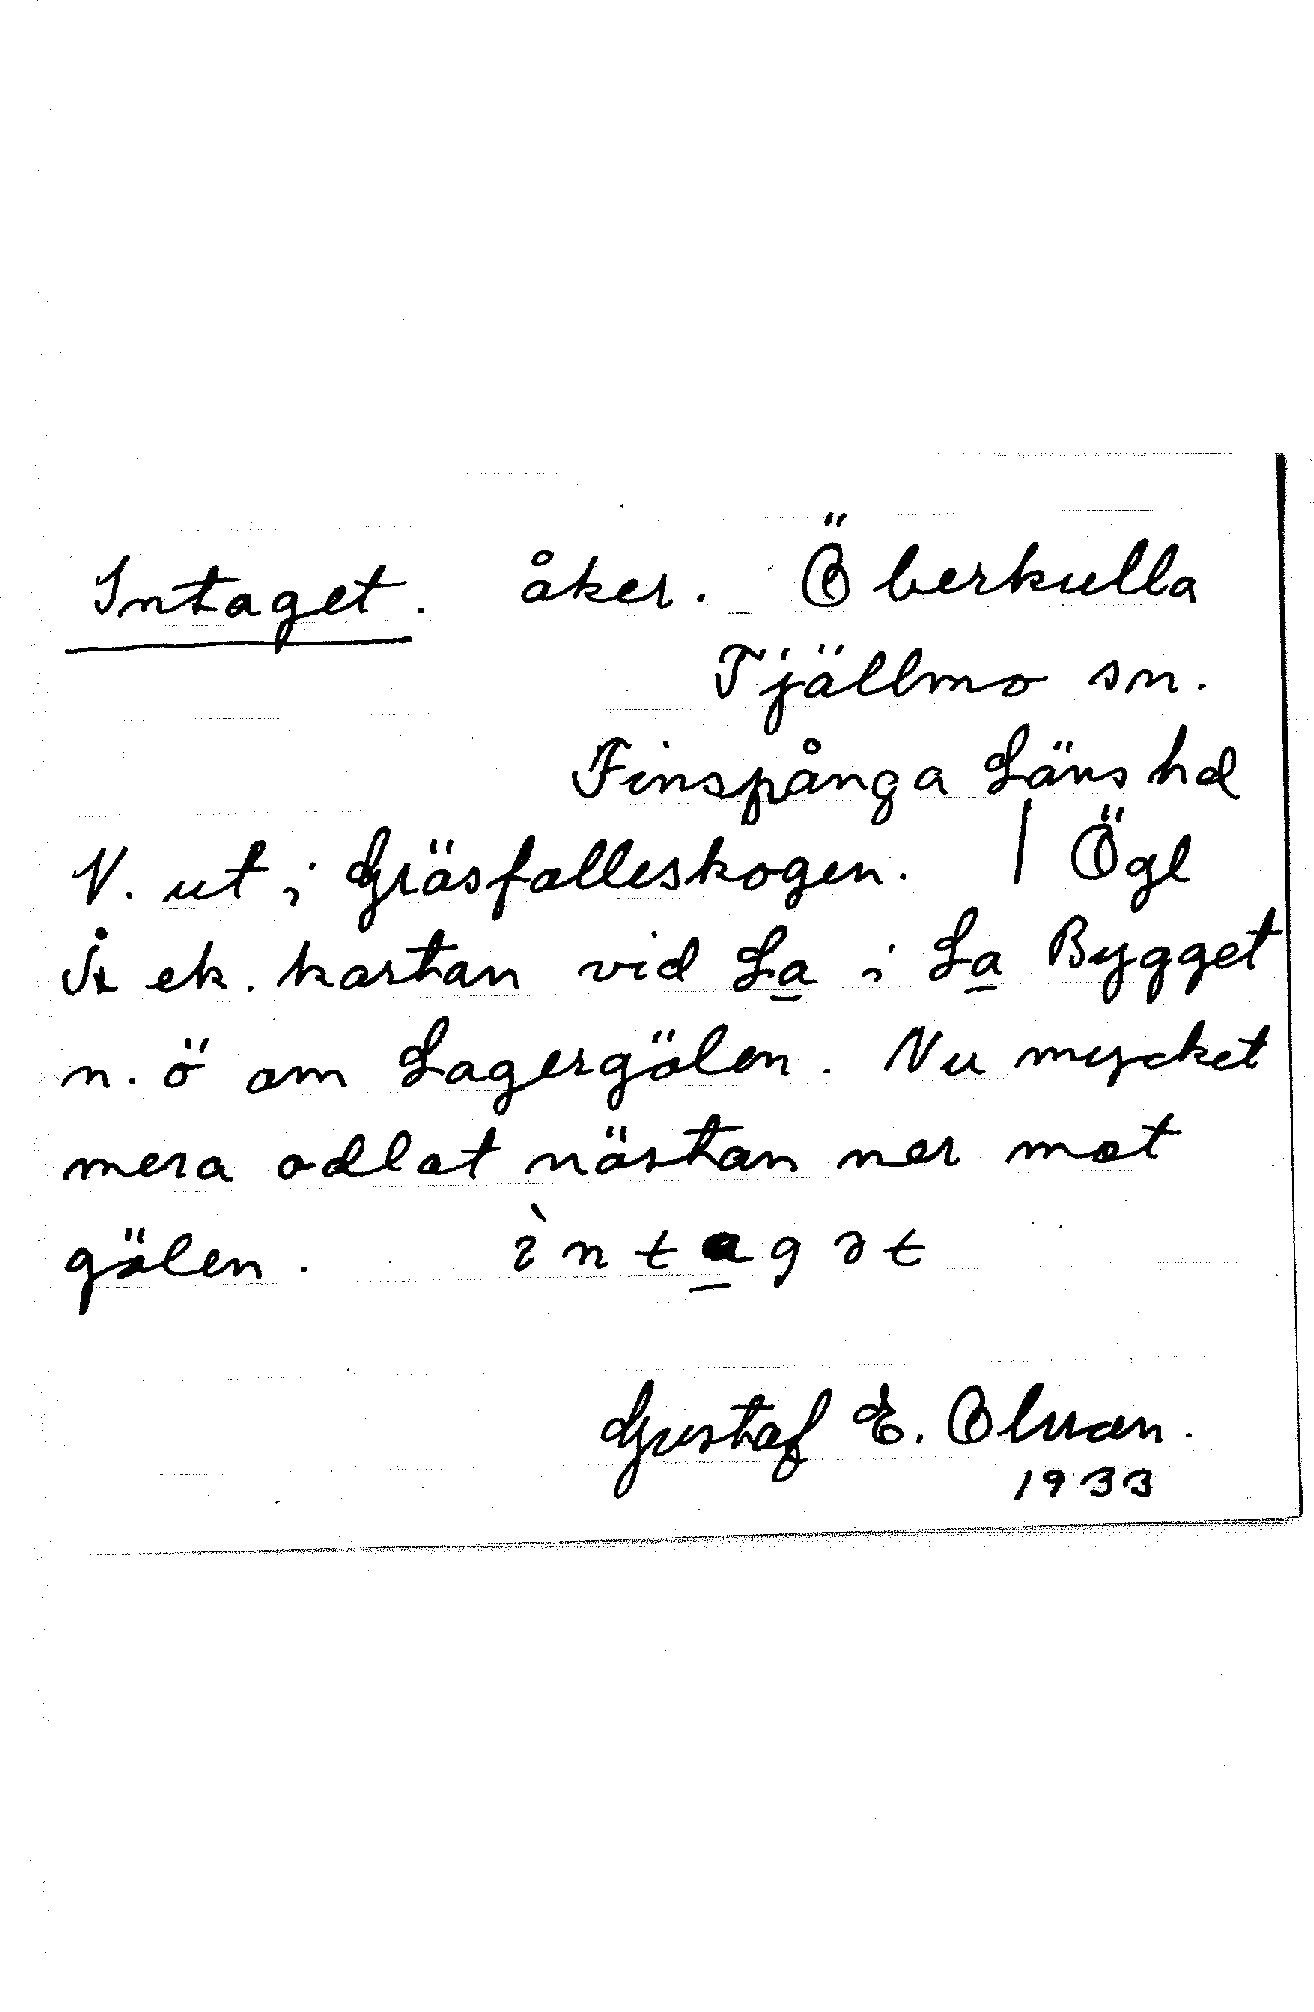 Intaget. åker. Öberkulla
Tjällmo sn.
Finspånga Läns hd
V. ut i Gräsfalleskogen. | Ögl
Å ek. kartan vid La i La Bygget
n. ö om Lagergölen. Nu mycket
mera odlat nästan ner mot
gölen. ìntagət
Gustaf E. Olsson.
1933